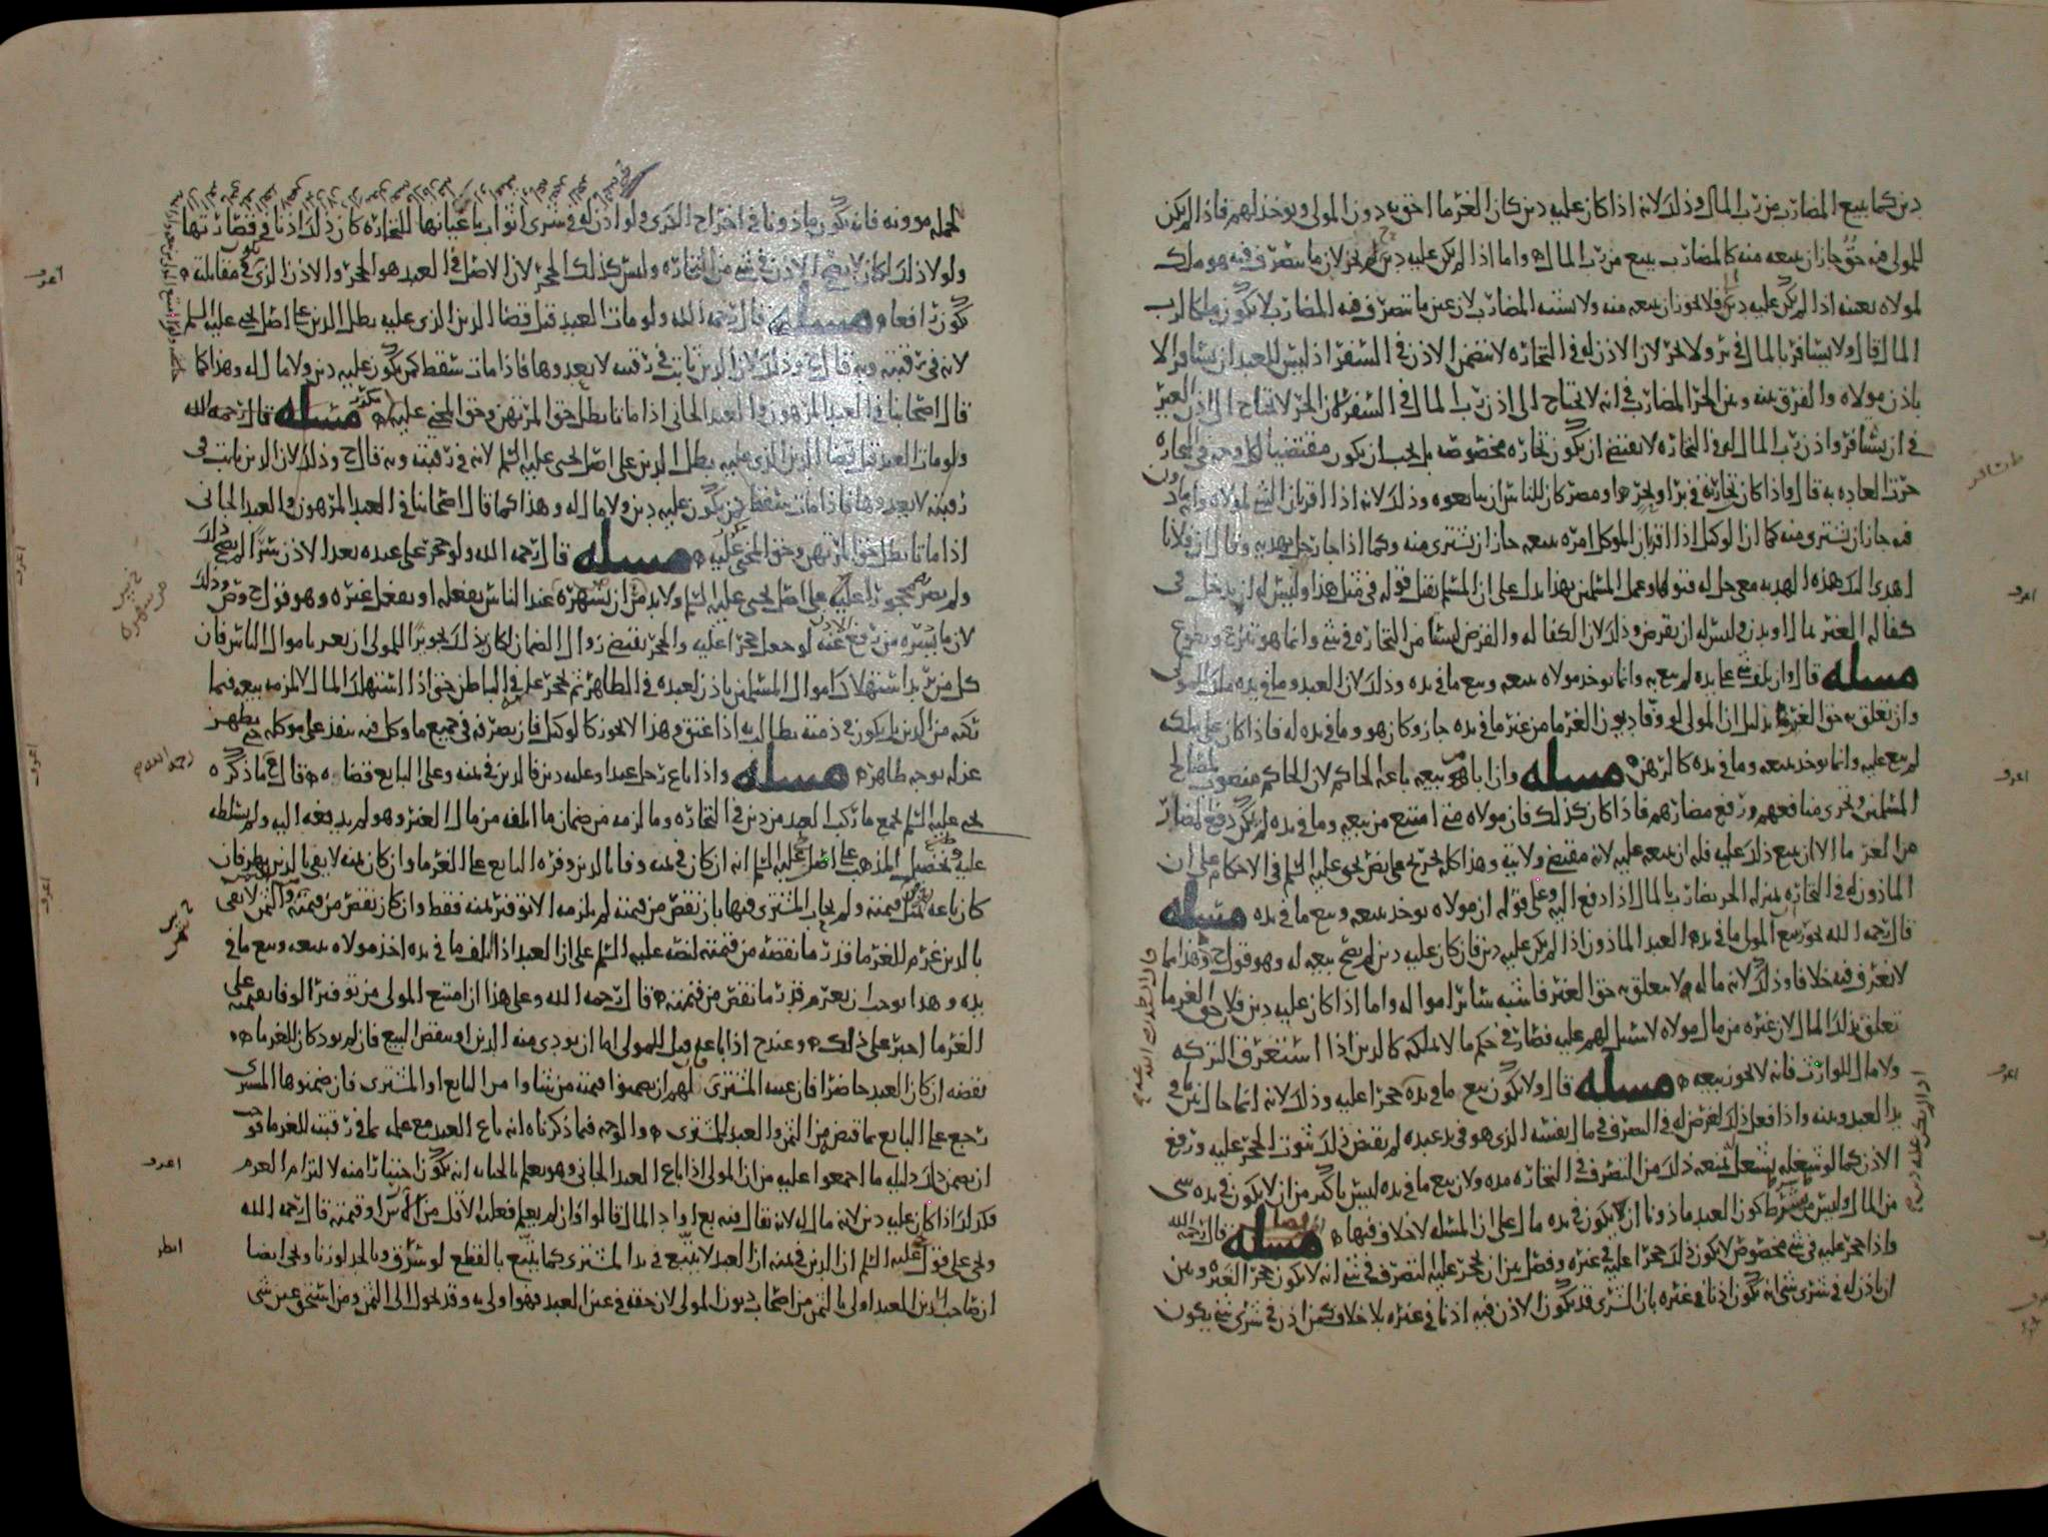 دين كما يبيع المضارب من رب المال وذلك لانه اذا كان عليه دين كان الغرما احق به دون المولى ويوخذ لهم فاذا لم يكن
للمولى فيه حق جاز ان يبيعه منه كالمضارب يبيع من رب المال واما اذا لم يكن عليه دين لم يجز لان ما يتصرف فيه هو ملك
لمولاه بعينه اذا لم يكن عليه دين فلا يجوز ان يبيعه منه ولا يشبه المضارب لان عين ما يتصرف فيه المضارب لا يكون ملكا لرب
المال قال ولا يسافر بالمال في بر ولا بحر لان الاذن له في التجارة لا يتضمن الاذن في السفر اذ ليس للعبد ان يسافر الا
باذن مولاه والفرق بينه وبين الحر المضارب في انه لا يحتاج الى اذن رب المال في السفر لان الحر لا يحتاج الى اذن الغير
في ان يسافر واذن رب المال له في التجارة لا يقتضي ان يكون تجارة مخصوصة بل يجب ان يكون مقتضيا لكل وجه في التجارة
جرت العادة به قال واذا كان تجارته في بر او بحر او مصر كان للناس ان يبايعوه وذلك لانه اذا اقر بان الشي لمولاه وانه ماذون
فيه جاز ان يشترى منه كما ان الوكيل اذا اقر بان الموكل امره ببيعه جاز ان يشترى منه وكما اذا جا رجل بهدية وقال ان فلانا
اهدى اليك هذه الهدية معي حل له قبولها وعمل المسلمين بهذا يدل على ان المسلم يقبل قوله في مثل هذا وليس له ان يدخل في
كفالة الغير بمال او بدن وليس له ان يقرض وذلك لان الكفالة والقرض ليسا من التجارة في شي وانما هو تبرع وتطوع
مسله قال وان تلف شي مما بيده لم يبع به وانما يوخذ مولاه ببيعه وبيع ما في يده وذلك لان العبد وما في يده ملك للمولى
وان تعلق به حق الغرما بذليل ان المولى لو وفا ديون الغرما من غير ما في يده جاز وكان هو وما في يده له فاذا كان على ملكه
لم يبع عليه وانما يوخذ ببيعه وما في يده كالرهن مسله وان ابا من بيعه باعه الحاكم لان الحاكم منصوب لمصالح
المسلمين وتحرى منافعهم ودفع مضارهم فاذا كان كذلك فان مولاه متى امتنع من بيعه وما في يده لم يكن دفع المضار
من الغرما الا ان يبيع ذلك عليه فله ان يبيعه عليه لانه مقتضى ولايته وهذا كله تخريج على نص يحيى عليه السلم في الاحكام على ان
الماذون له في التجارة بمنزلة الحر يضارب بالمال اذا دفع اليه وعلى قوله ان مولاه يوخذ ببيعه وبيع ما في يده مسله
قال رحمه الله يجوز بيع المولى ما في يد العبد الماذون اذا لم يكن عليه دين فان كان عليه دين لم يصح بيعه له وهو قول ح وهذا مما
لا نعرف فيه خلافا وذلك لانه ماله ولا يتعلق به حق الغير فاشبه سائر امواله واما اذا كان عليه دين فلان حق الغرما
تعلق بذلك المال لان غيره من مال مولاه لا سبيل لهم عليه فصار في حكم ما لا يملكه كالدين اذا استغرق التركه
ولا مال للوارث فانه لا يجوز بيعه مسله قال ولا يكون بيع ما في يده حجرا عليه وذلك لانه انما حال بين ما في
يد العبد وبينه واذا فعل ذلك لغرض له في التصرف في مال نفسه الذي هو في يد عبده لم يقتض ذلك ثبوت الحجر عليه ورفع
الاذن كما لو شغله بشغل يمنعه ذلك من التصرف في التجارة مدة ولان بيع ما في يده ليس باكثر من ان لا يكون في يده شي
من المال وليس من شرط كون العبد ماذونا ان يكون في يده مال على ان المسله لا خلاف فيها مسله قال رحمه الله
واذا حجر عليه في شي مخصوص لا يكون ذلك حجرا عليه في غيره وفصل بين ان يحجر عليه التصرف في شي انه لا يكون حجرا لغيره وبين
ان ياذن له في شرى شي انه يكون اذنا في غيره بان الشرى قد يكون الاذن فيه اذنا في غيره بلا خلاف كمن اذن في شرى شي يكون
لحمله موونه فانه يكون ماذونا في اخراج الكرى ولو اذن له في شرى اثواب باعيانها للتجارة كان ذلك اذنا في قصارتها
ولولا ذلك لكان لا يصح الاذن في شي من التجارة وليس كذلك الحجر لان الاصل في العبد هو الحجر والاذن الذي في مقابلته
يكون رافعا مسله قال رحمه الله ولو مات العبد قبل قضا الدين الذي عليه بطل الدين على اصل يحيى عليه السلم
لانه في رقبته وبه قال ح وذلك لان الدين ثابت في رقبته لا يعدوها فاذا مات سقط كمن يكون عليه دين ولا مال له وهذا كما
قال اصحابنا في العبد المرهون والعبد الجاني اذا ماتا بطل حق المرتهن وحق المجني عليه مكرر مسله قال رحمه الله
ولو مات العبد قبل قضا الدين الذي عليه بطل الدين على اصل يحيى عليه السلم لانه في رقبته وبه قال ح وذلك لان الدين ثابت في
رقبته لا يعدوها فاذا مات سقط كمن يكون عليه دين ولا مال له وهذا كما قال اصحابنا في العبد المرهون والعبد الجاني
اذا ماتا بطل حق المرتهن وحق المجني عليه مسله قال رحمه الله ولو حجر على عبده بعد الاذن سرا لم يصح ذلك
ولم يصر محجورا عليه على اصل يحيى عليه السلم ولا بد من ان يشهره عند الناس بفعله او بفعل غيره وهو قول ح وص وذلك
لان ما يسره من رفع الاذن عنه لو جعل حجرا عليه والحجر يقتضي زوال الضمان لكان ذلك تجويزا للمولى ان يغر باموال الناس فان
كل من يريد استهلاك اموال المسلمين ياذن لعبده في الظاهر ثم يحجر عليه في الباطن حتى اذا استهلك المال لا يلزمه بيعه فيما
ركبه من الدين بل يكون في ذمته يطالب به اذا عتق وهذا لا يجوز كالوكيل فان تصرفه في جميع ما وكل فيه ينفذ على موكله حتى يظهر
عزله بوجه ظاهر مسله واذا باع رجل عبدا وعليه دين فالدين في ثمنه وعلى البايع قضاوه قال ح ما ذكره
يحيى عليه السلم يجمع ما ركب العبد من دين في التجارة وما لزمه من ضمان ما اتلفه من مال الغير وهو لم يدفعه اليه ولم يسلطه
عليه وتحصيل المذهب على اصل يحيى عليه السلم انه ان كان في ثمنه وفا بالدين وفره البايع على الغرما وان كان ثمنه لا يفي بالدين نظر فان
كان باعه بمثل قيمته ولم يحاب المشترى فيها بان نقص من قيمته لم يلزمه الا توفير ثمنه فقط وان كان نقص من قيمته والثمن لا يفي
بالدين غرم للغرما قدر ما نقصه من قيمته لنصه عليه السلم على ان العبد اذا اتلف ما في يده اخذ مولاه ببيعه وبيع ما في
يده وهذا يوجب ان يغرم قدر ما نقص من قيمته قال رحمه الله وعلى هذا ان امتنع المولى من توفير الوفا بقيمته على
الغرما اجبر على ذلك وعند ح اذا باعه قيل للمولى اما ان يودى منه الدين او ينقض البيع فان لم يود كان للغرما
نقضه ان كان العبد حاضرا فان غيبه المشترى لهم ان يضمنوا قيمته من شاوا من البايع او المشترى فان ضمنوها المشترى
رجع على البايع بما قبض من الثمن والعبد للمشترى والوجه فيما ذكرناه انه باع العبد مع علمه بما في رقبته للغرما فوجب
ان يضمن ذلك دليله ما اجمعوا عليه من ان المولى اذا باع العبد الجاني وهو يعلم بالجنايه انه يكون اختيارا منه لالتزام الغرم
فكذلك اذا كان عليه دين لانه مال له لانه يقال فيه بع او اد المال قالوا فان لم يعلم فعليه الاقل من الارش او قيمته قال رحمه الله
ويجي على قوله عليه السلم ان الدين في ثمنه ان العبد لا يتبع في يد المشترى كما يتبع بالقطع لو سرق وبالحد لو زنا ويجي ايضا
ان صاحب الدين للعبد اولى بالثمن من اصحاب ديون المولى لان حقه في عين العبد فهو اولى به وقد تحول الى الثمن ومن استحق عين شي